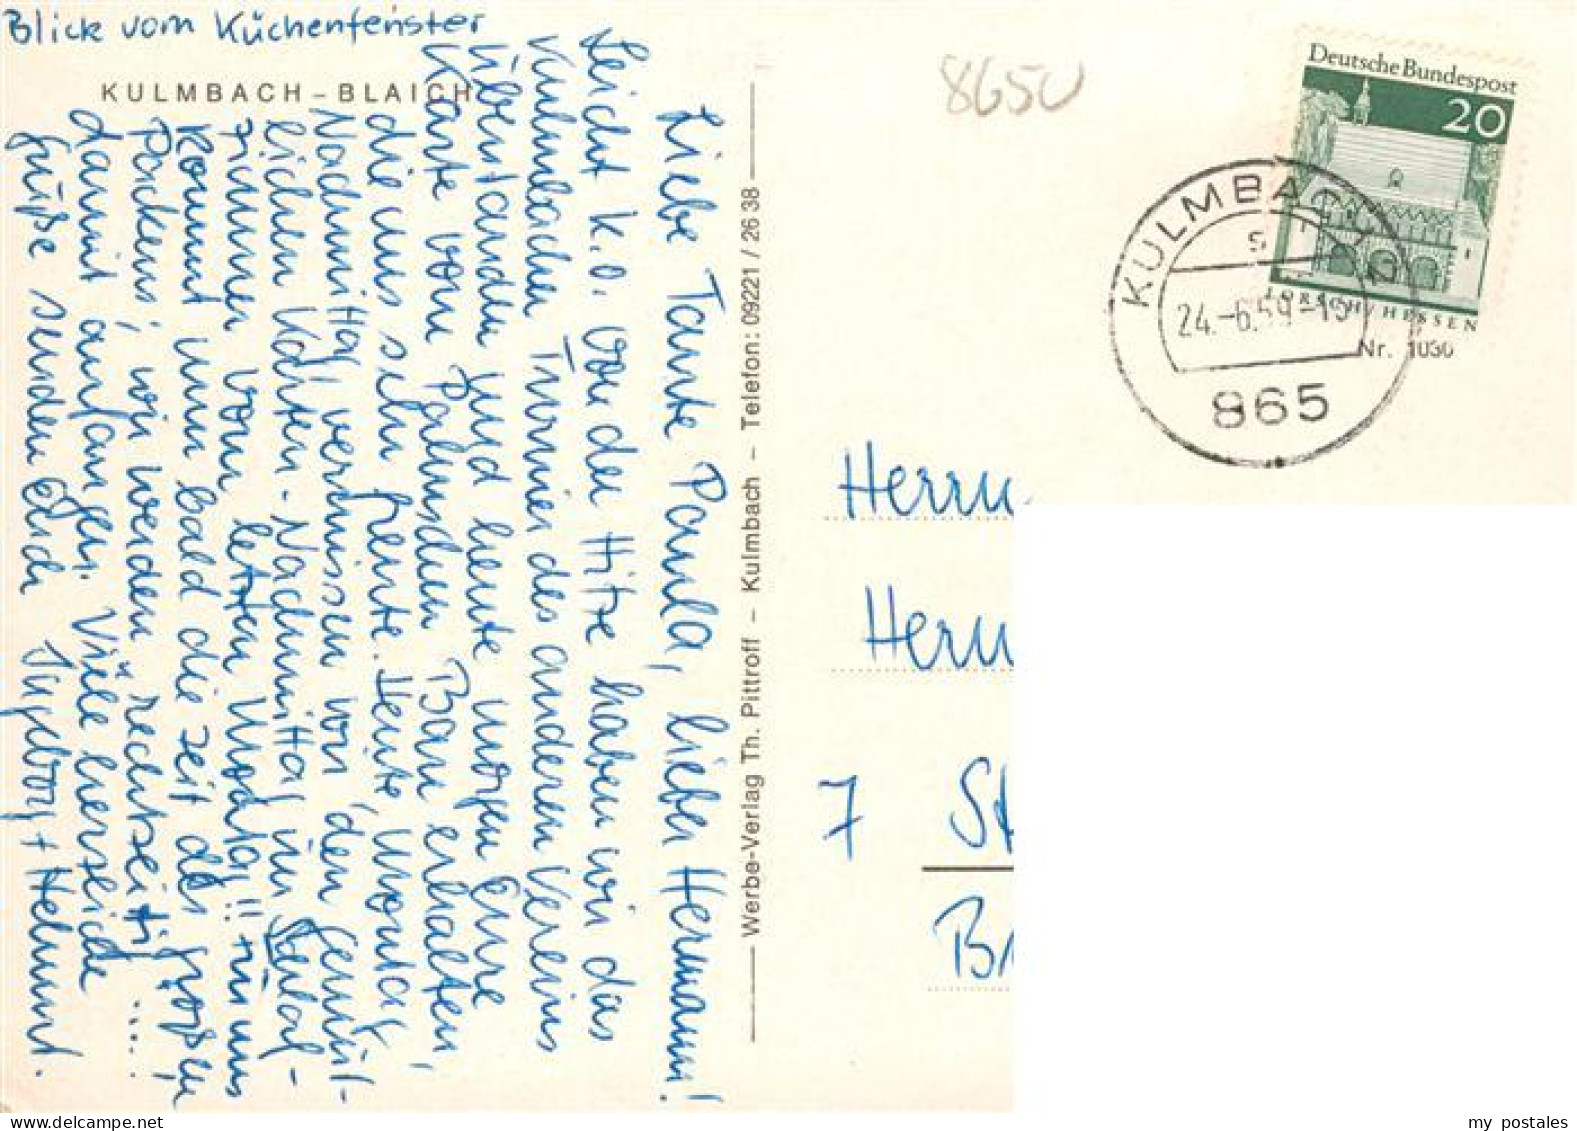 Blick vom Küchenfenster
KULMBACH - BLAICH
Liebe Tante Paula, lieber Hermann!
Leicht k.o. von der Hitze haben wir das
Kulmbacher Turnier des anderen Vereins
überstanden und heute morgen Eure
Karte vom Bau erhalten,
die uns sehr freute. Heute, Montag
Nachmittag, vermissen wir den gemüt-
lichen Karten-Nachmittag im
zimmer vom letzten Montag!! Für uns
kommt nun bald die Zeit des großen
Packens, wir werden "rechtzeitig" .....!
damit anfangen. Viele herzliche
Grüße senden Euch Ingeborg + Helmut.
Werbe-Verlag Th. Pittroff - Kulmbach - Telefon: 09221 / 26 38
8650
Deutsche Bundespost
20
LORSCH / HESSEN
KULMBACH
24.-6.
865
Nr. 1030
Herrn
7 St
my postales
delcampe.net